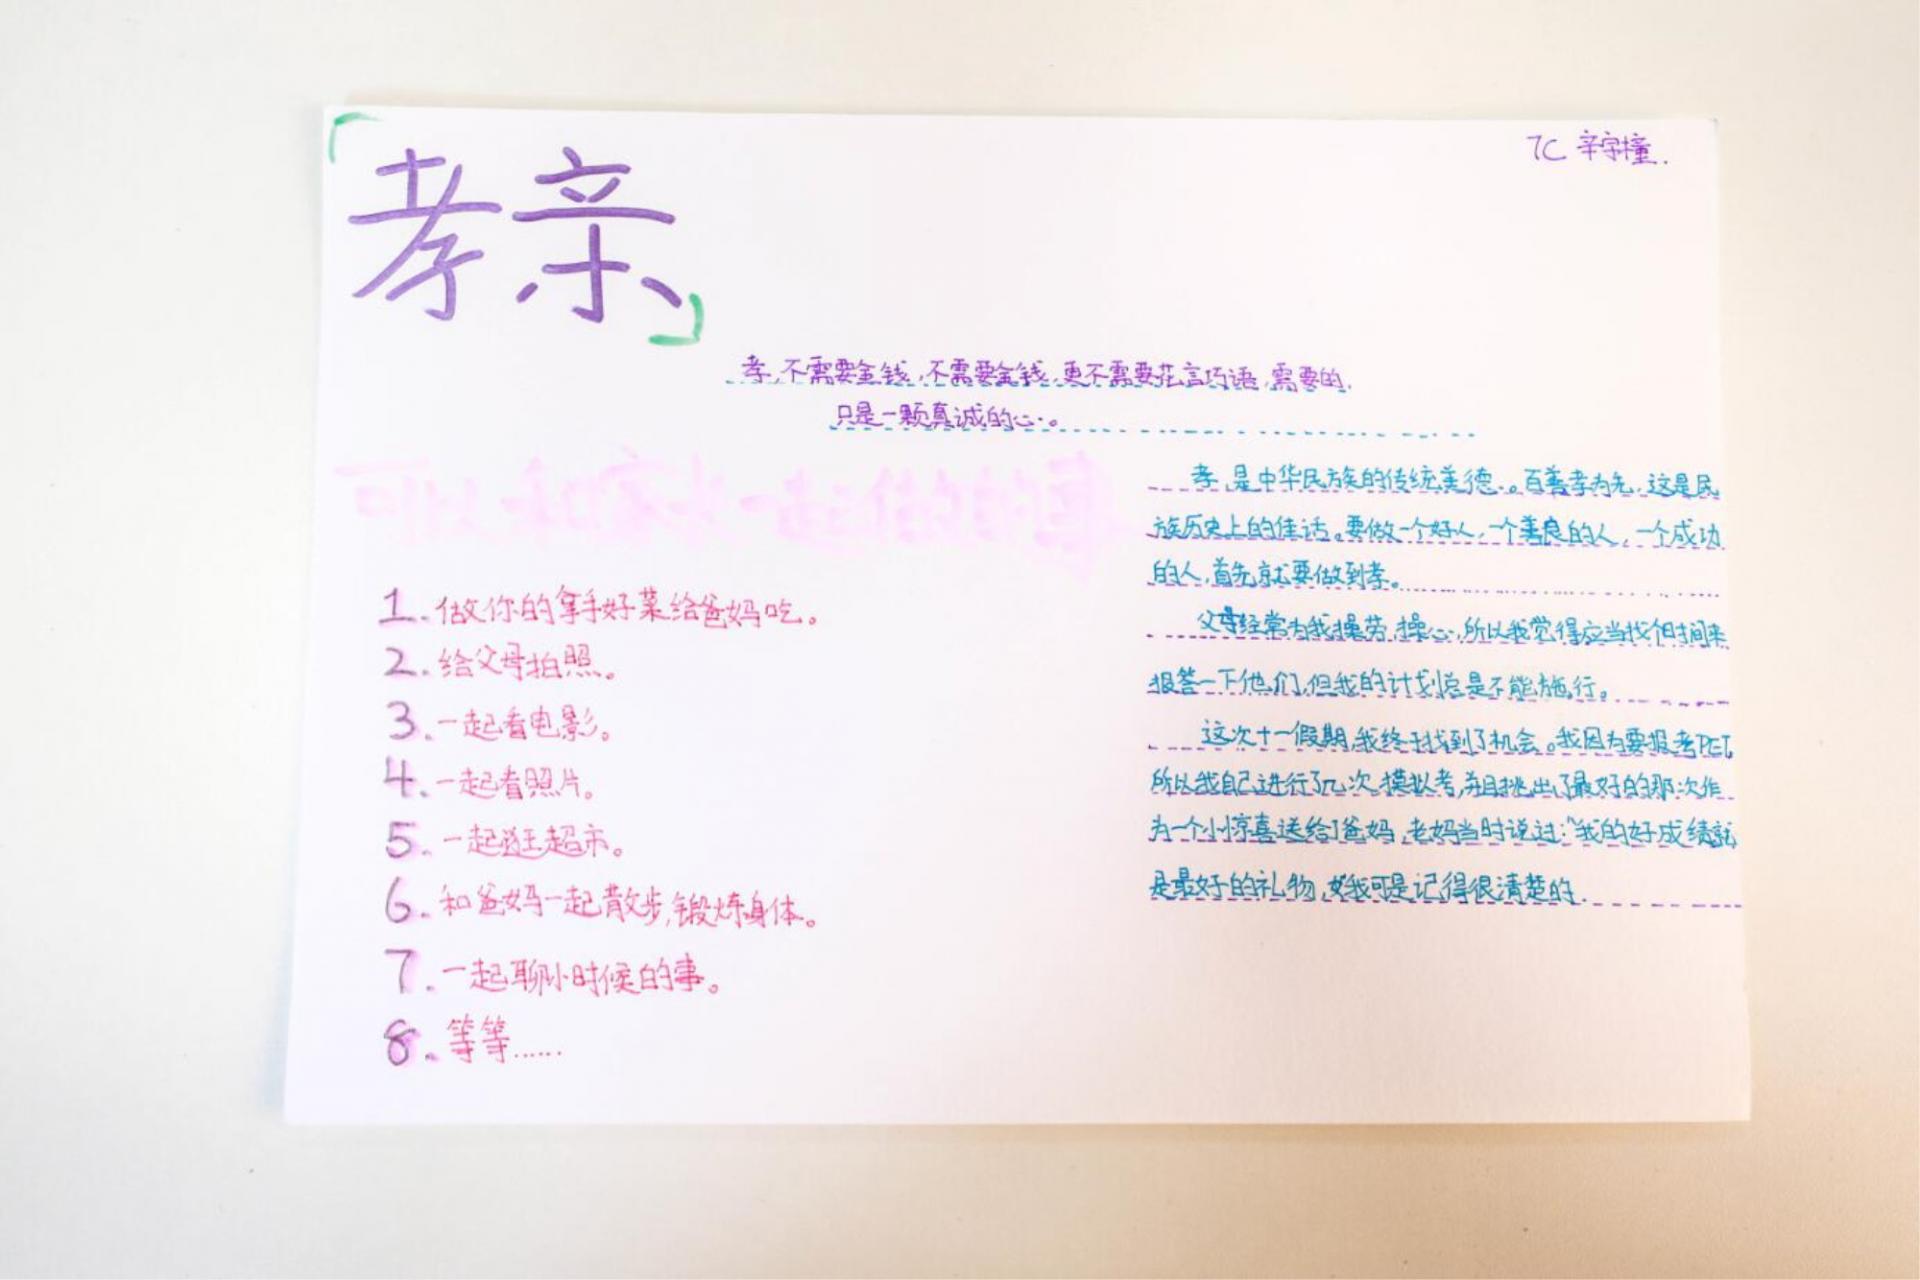 「孝亲」
7C 辛宇橦.
孝,不需要金钱,不需要金钱,更不需要花言巧语,需要的,
只是一颗真诚的心。
1.做你的拿手好菜给爸妈吃。
2.给父母拍照。
3.一起看电影。
4.一起看照片。
5.一起逛超市。
6.和爸妈一起散步,锻炼身体。
7.一起聊小时候的事。
8.等等……
孝,是中华民族的传统美德。百善孝为先,这是民
族历史上的佳话。要做一个好人,一个善良的人,一个成功
的人,首先就要做到孝。
父母经常为我操劳,操心,所以我觉得应当找个时间来
报答一下他们,但我的计划总是不能施行。
这次十一假期,我终于找到了机会。我因为要报考PET,
所以我自己进行了几次模拟考,并且挑出了最好的那次作
为一个小惊喜送给了爸妈,老妈当时说过:"我的好成绩就
是最好的礼物,我可是记得很清楚的.